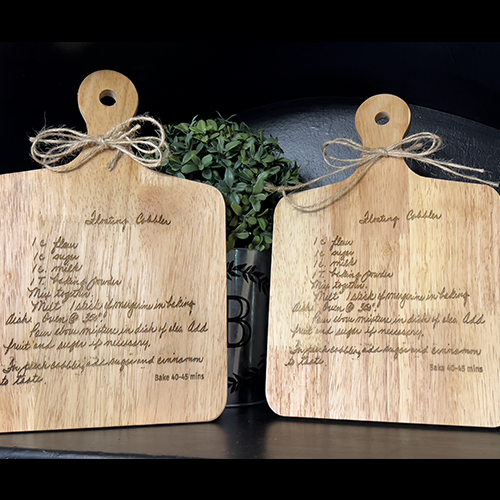 Floating Cobbler
1 c flour
1 c sugar
1 c milk
1 T. baking powder
Mix together.
Melt 1 stick of margerine in baking
dish oven @ 350°.
Pour above mixture in dish of oleo. Add
fruit and sugar if necessary.
In peach cobbler, add sugar and cinnamon
to taste.
Bake 40-45 mins
B
Floating Cobbler
1 c flour
1 c sugar
1 c milk
1 T. baking powder
Mix together.
Melt 1 stick of margerine in baking
dish oven @ 350°.
Pour above mixture in dish of oleo. Add
fruit and sugar if necessary.
In peach cobbler, add sugar and cinnamon
to taste.
Bake 40-45 mins